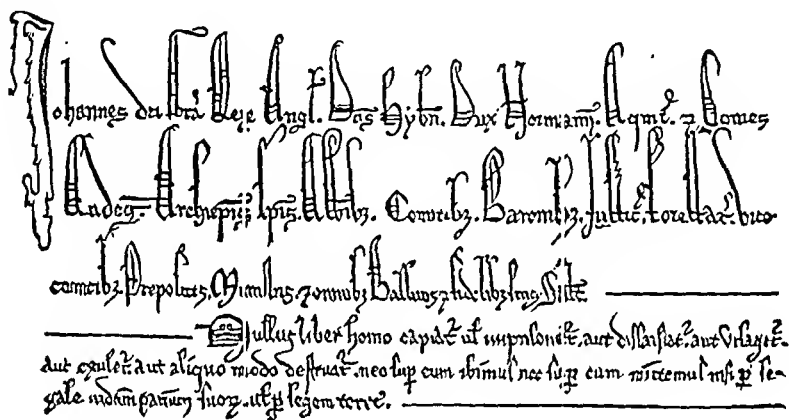 Johannes dei gra Rex Angl. Dns Hybn. Dux Normann. Aquit. ⁊ Comes
Andeg. Archiepis, Epis, Abbibz. Comitibz. Baronibz. Justic, Forestar. vice
comitibz. Prepositis, Ministris, ⁊ omnibz Ballivis ⁊ fidelibz suis, Saltm
Nullus liber homo capiatr. vel imprisonetr. aut dissaisiatr. aut utlagetr.
aut exuletr. aut aliquo modo destruatr. nec sup eum ibimus nec sup eum mittemus nisi p le-
gale judicium parium suorz. vel p legem terre.